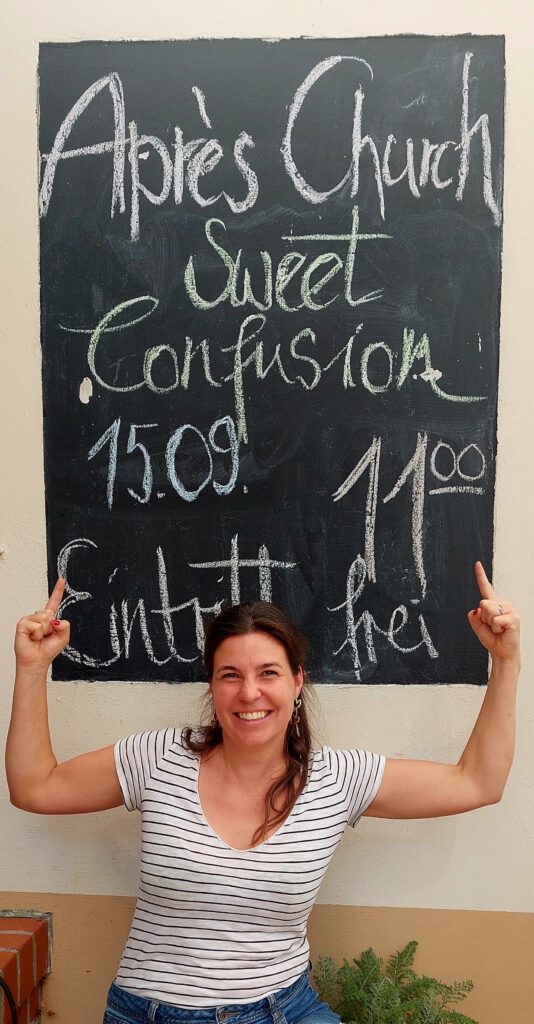 Après Church
Sweet
Confusion
15.09. 11⁰⁰
Eintritt frei